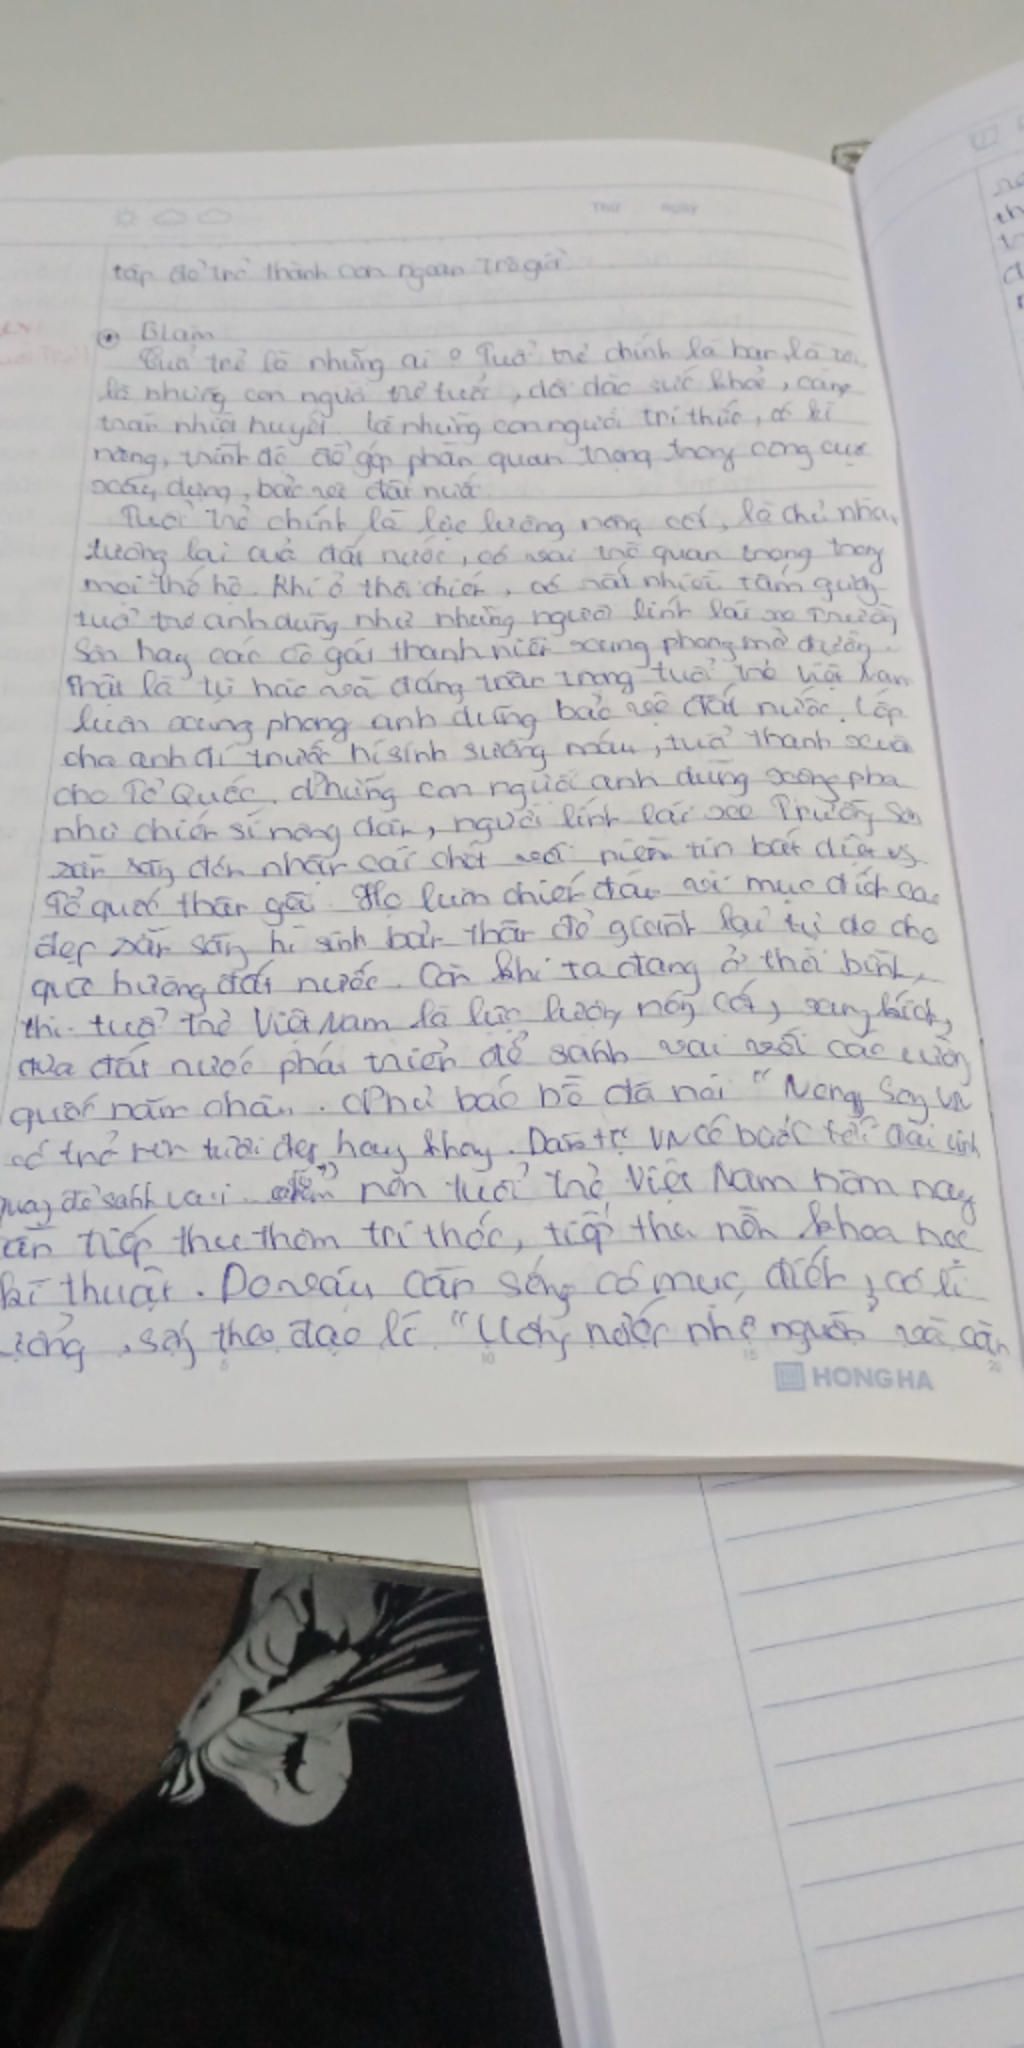 Thứ ngày
tập để trở thành con ngoan trò giỏi
Blàm
Tuổi trẻ là những ai? Tuổi trẻ chính là bạn, là tôi,
là những con người trẻ tuổi, dồi dào sức khoẻ, căng
tràn nhiệt huyết. Là những con người trí thức, có kĩ
năng, trình độ để góp phần quan trọng trong công cuộc
xây dựng, bảo vệ đất nước.
Tuổi trẻ chính là lực lượng nòng cốt, là chủ nhân
tương lai của đất nước, có vai trò quan trọng trong
mọi thế hệ. Khi ở thời chiến, có rất nhiều tấm gương
tuổi trẻ anh dũng như những người lính lái xe Trường
Sơn hay các cô gái thanh niên xung phong mở đường.
Thật là tự hào và đáng trân trọng tuổi trẻ Việt Nam
luôn xung phong anh dũng bảo vệ đất nước. Lớp
cha anh đi trước hi sinh xương máu, tuổi thanh xuân
cho Tổ Quốc. Những con người anh dũng xông pha
như chiến sĩ nông dân, người lính lái xe Trường Sơn
sẵn sàng đón nhận cái chết với niềm tin bất diệt vs
Tổ quốc thân yêu. Họ luôn chiến đấu với mục đích cao
đẹp sẵn sàng hi sinh bản thân để giành lại tự do cho
quê hương đất nước. Còn khi ta đang ở thời bình,
thì tuổi trẻ Việt Nam là lực lượng nòng cốt, xung kích,
đưa đất nước phát triển để sánh vai với các cường
quốc năm châu. Như bác Hồ đã nói "Nong Sông VN
có trở nên tươi đẹp hay không. Dân tộc VN có bước tới đài vinh
quang để sánh vai..." nên tuổi trẻ Việt Nam hôm nay
cần tiếp thu thêm tri thức, tiếp thu nền khoa học
kĩ thuật. Do vậy cần sống có mục đích, có lí
tưởng, sống theo đạo lí "Uống nước nhớ nguồn" và cần
5 10 15 20
HONG HA